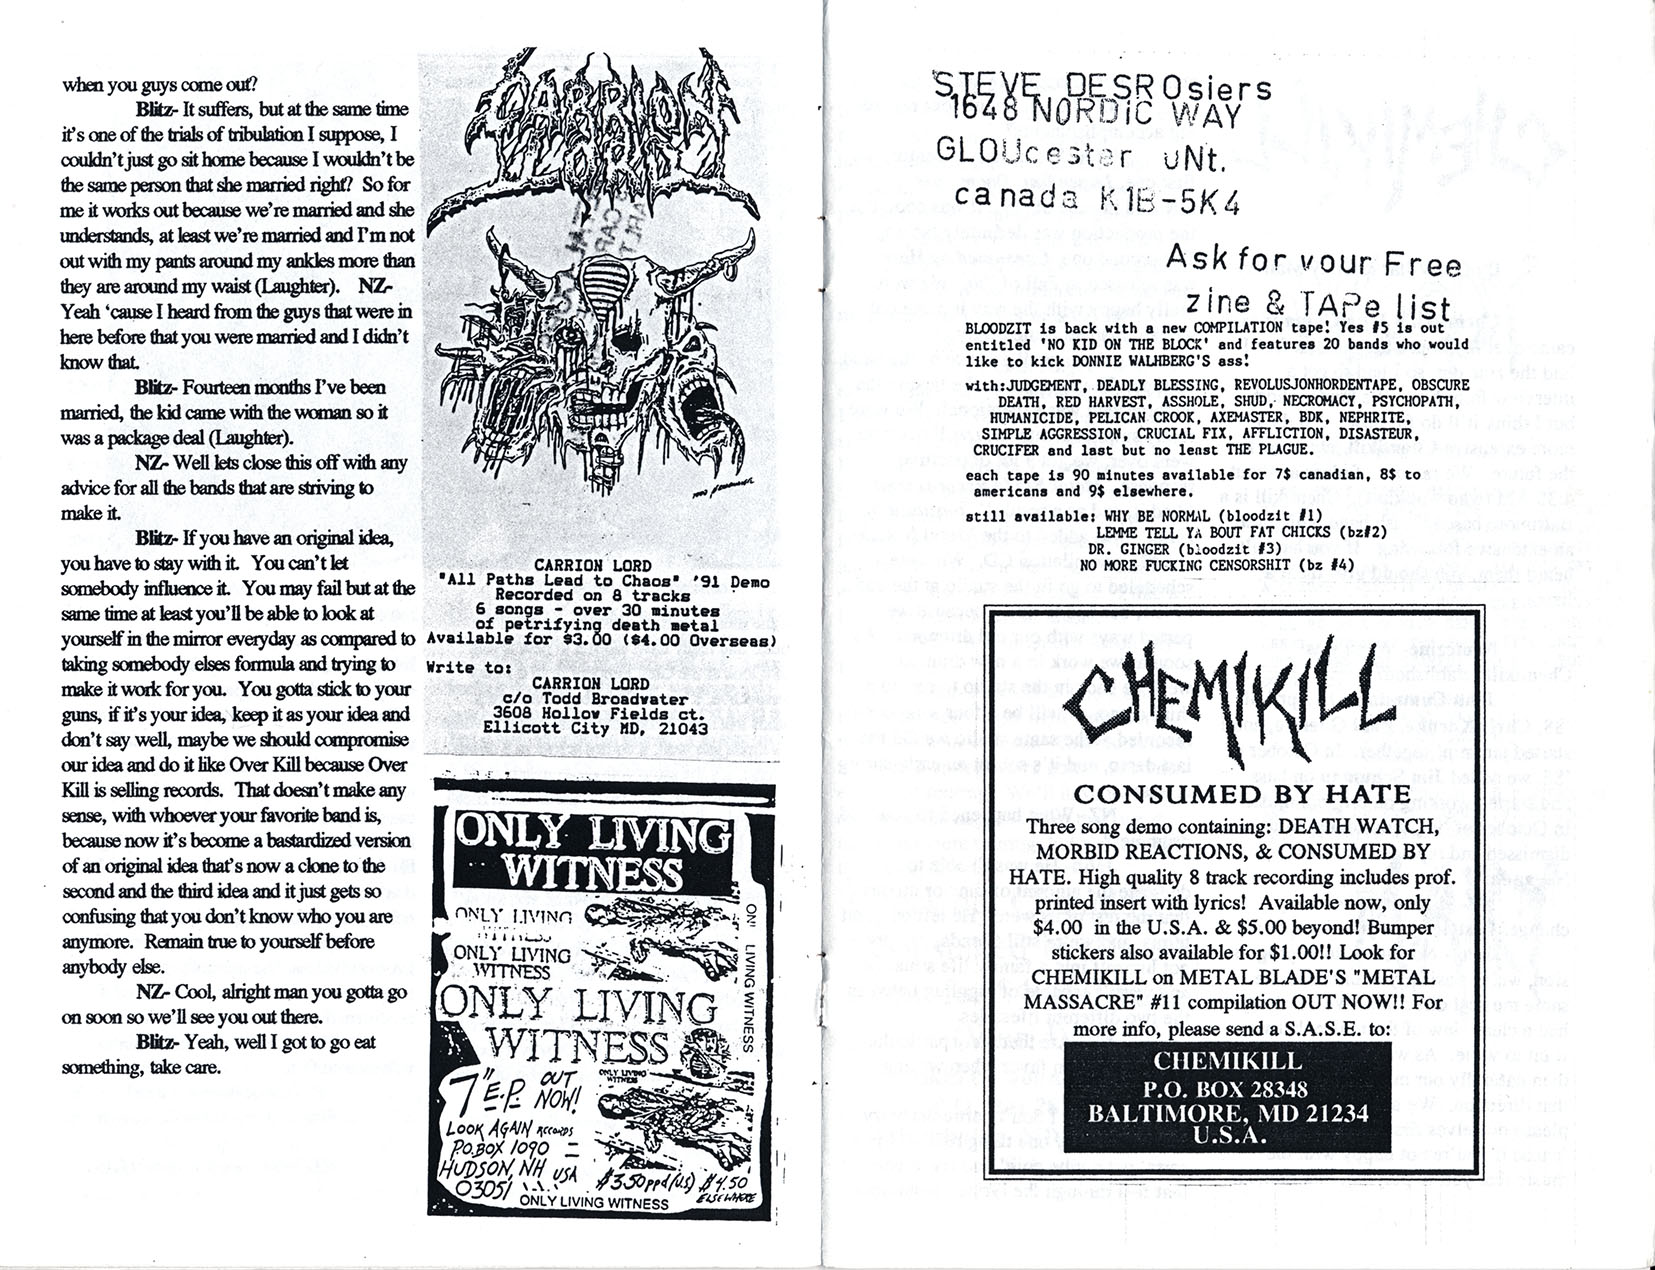 when you guys come out?
Blitz- It suffers, but at the same time
it's one of the trials of tribulation I suppose, I
couldn't just go sit home because I wouldn't be
the same person that she married right?  So for
me it works out because we're married and she
understands, at least we're married and I'm not
out with my pants around my ankles more than
they are around my waist (Laughter).   NZ-
Yeah 'cause I heard from the guys that were in
here before that you were married and I didn't
know that.
Blitz- Fourteen months I've been
married, the kid came with the woman so it
was a package deal (Laughter).
NZ- Well lets close this off with any
advice for all the bands that are striving to
make it.
Blitz- If you have an original idea,
you have to stay with it.  You can't let
somebody influence it.  You may fail but at the
same time at least you'll be able to look at
yourself in the mirror everyday as compared to
taking somebody elses formula and trying to
make it work for you.  You gotta stick to your
guns, if it's your idea, keep it as your idea and
don't say well, maybe we should compromise
our idea and do it like Over Kill because Over
Kill is selling records.  That doesn't make any
sense, with whoever your favorite band is,
because now it's become a bastardized version
of an original idea that's now a clone to the
second and the third idea and it just gets so
confusing that you don't know who you are
anymore.  Remain true to yourself before
anybody else.
NZ- Cool, alright man you gotta go
on soon so we'll see you out there.
Blitz- Yeah, well I got to go eat
something, take care.
CARRION
LORD
CARRION LORD
"All Paths Lead to Chaos" '91 Demo
Recorded on 8 tracks
6 songs - over 30 minutes
of petrifying death metal
Available for $3.00 ($4.00 Overseas)
Write to:
CARRION LORD
c/o Todd Broadwater
3608 Hollow Fields ct.
Ellicott City MD, 21043
ONLY LIVING
WITNESS
ONLY LIVING
WITNESS
ONLY LIVING
WITNESS
ONLY LIVING
WITNESS
ONLY LIVING WITNESS
ONLY LIVING
WITNESS
7" E.P. OUT
NOW!
LOOK AGAIN RECORDS
P.O. BOX 1090
HUDSON, NH USA
03051
$3.50 ppd (U.S) $4.50
ELSEWHERE
ONLY LIVING WITNESS
STEVE DESROsiers
1648 NORDiC WAY
GLOUcester oNt.
canada K1B-5K4
Ask for your Free
zine & TAPe list
BLOODZIT is back with a new COMPILATION tape! Yes #5 is out
entitled 'NO KID ON THE BLOCK' and features 20 bands who would
like to kick DONNIE WALHBERG'S ass!
with:JUDGEMENT, DEADLY BLESSING, REVOLUSJONHORDENTAPE, OBSCURE
DEATH, RED HARVEST, ASSHOLE, SHUD, NECROMACY, PSYCHOPATH,
HUMANICIDE, PELICAN CROOK, AXEMASTER, BDK, NEPHRITE,
SIMPLE AGGRESSION, CRUCIAL FIX, AFFLICTION, DISASTEUR,
CRUCIFER and last but no least THE PLAGUE.
each tape is 90 minutes available for 7$ canadian, 8$ to
americans and 9$ elsewhere.
still available: WHY BE NORMAL (bloodzit #1)
LEMME TELL YA BOUT FAT CHICKS (bz#2)
DR. GINGER (bloodzit #3)
NO MORE FUCKING CENSORSHIT (bz #4)
CHEMIKILL
CONSUMED BY HATE
Three song demo containing: DEATH WATCH,
MORBID REACTIONS, & CONSUMED BY
HATE. High quality 8 track recording includes prof.
printed insert with lyrics!  Available now, only
$4.00  in the U.S.A. & $5.00 beyond! Bumper
stickers also available for $1.00!! Look for
CHEMIKILL on METAL BLADE'S "METAL
MASSACRE" #11 compilation OUT NOW!! For
more info, please send a S.A.S.E. to:
CHEMIKILL
P.O. BOX 28348
BALTIMORE, MD 21234
U.S.A.